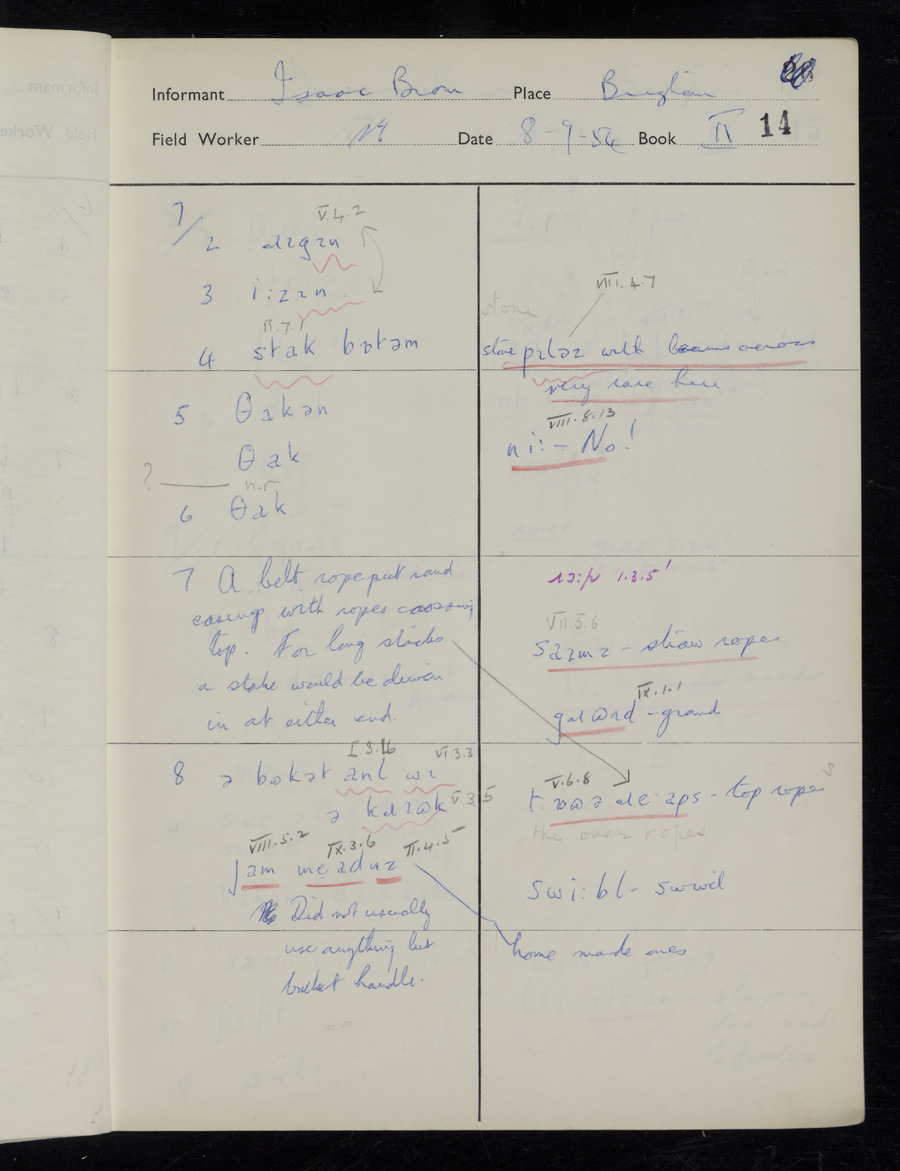 Informant Isaac Brow Place Brigham
Field Worker Date 8-9-54 Book II 14
7/2 dɪgɪn V.4.2
3 i:zɪn
II.7.1
4 stak botəm
5 θakən
θak
? n.r.
6 θak
7 A belt rope put round
easing with ropes crossing
top. For long stacks
a stake would be driven
in at either end.
I.3.16 VI.3.3
8 ə bʊkət anl wɪ
ə kɹʊk V.3.5
VIII.5.2 IX.3.6 II.4.5
Did not usually
use anything but
bucket handle.
VIII.4.7
stone
stone pɪləz with beams across
very rare here
VIII.8.13
ni: - No!
1.3.5'
VII.5.6
- straw ropes
IX.1.1
- ground
V.6.8
- top ropes
the over ropes
swi:bl - swivel
home made ones